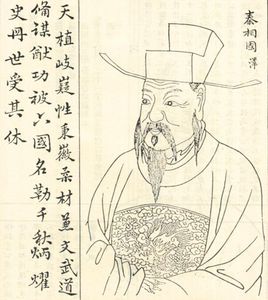 秦相國 澤
天植岐嶷性秉徽柔材兼文武道
偹謀猷功被六國名勒千秋炳耀
史冊世受其休